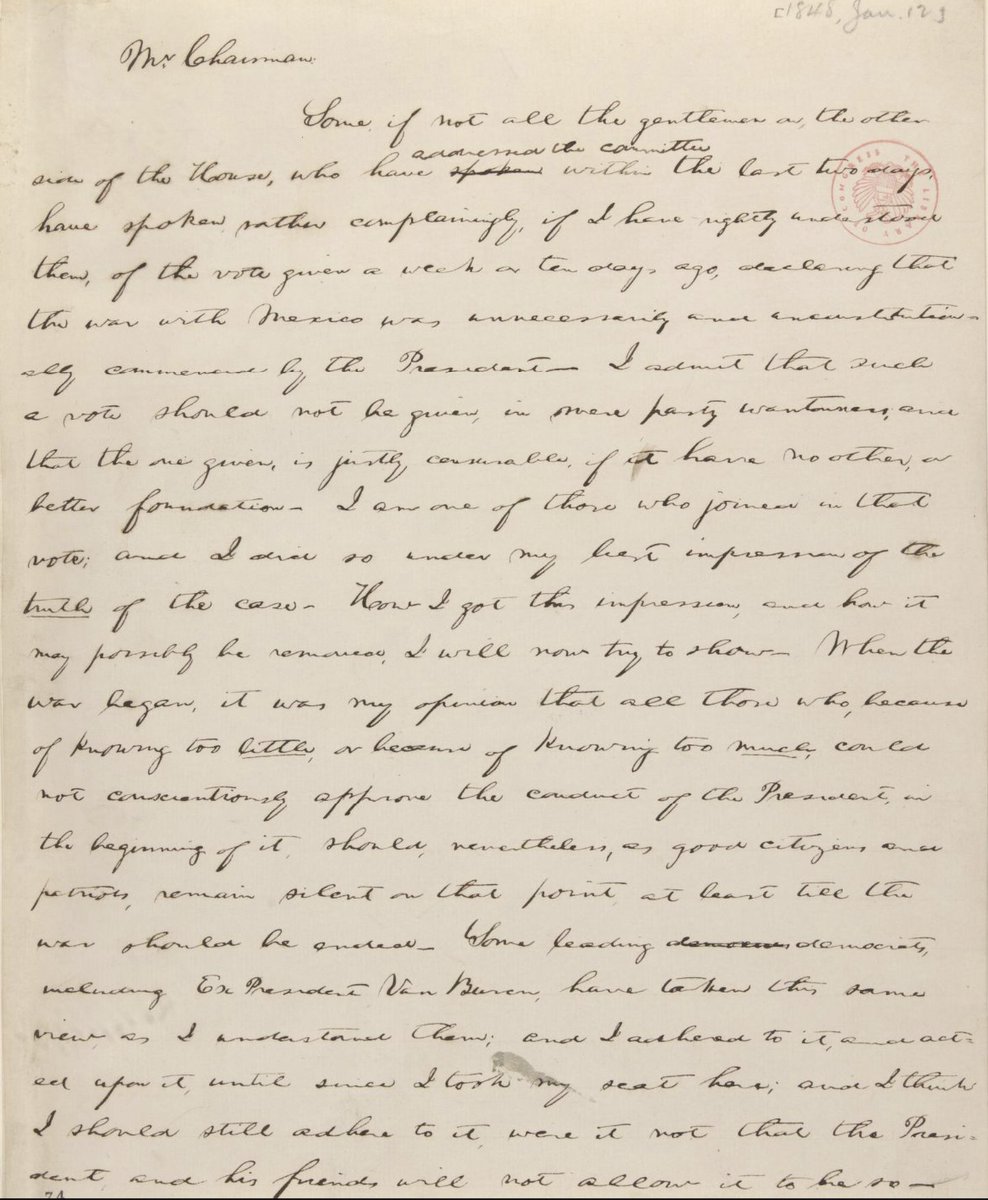 [1848, Jan. 12]
Mr. Chairman:
Some, if not all the gentlemen on, the other
side of the House, who have spoken addressed the committee within the last two days,
have spoken rather complainingly, if I have rightly understood
them, of the vote given a week or ten days ago, declaring that
the war with Mexico was unnecessarily and unconstitution-
ally commenced by the President— I admit that such
a vote should not be given, in mere party wantonness, and
that the one given, is justly censurable, if it have no other, or
better foundation— I am one of those who joined in that
vote; and I did so under my best impression of the
truth of the case— How I got this impression, and how it
may possibly be removed, I will now try to show— When the
war began, it was my opinion that all those who, because
of knowing too little, or because of knowing too much, could
not conscientiously approve the conduct of the President, in
the beginning of it, should, nevertheless, as good citizens and
patriots, remain silent on that point, at least till the
war should be ended— Some leading democrats,
including Ex President Van Buren, have taken this same
view, as I understand them; and I adhered to it, and act-
ed upon it, until since I took my seat here; and I think
I should still adhere to it, were it not that the Presi-
dent, and his friends will not allow it to be so—
THE LIBRARY OF CONGRESS
7A